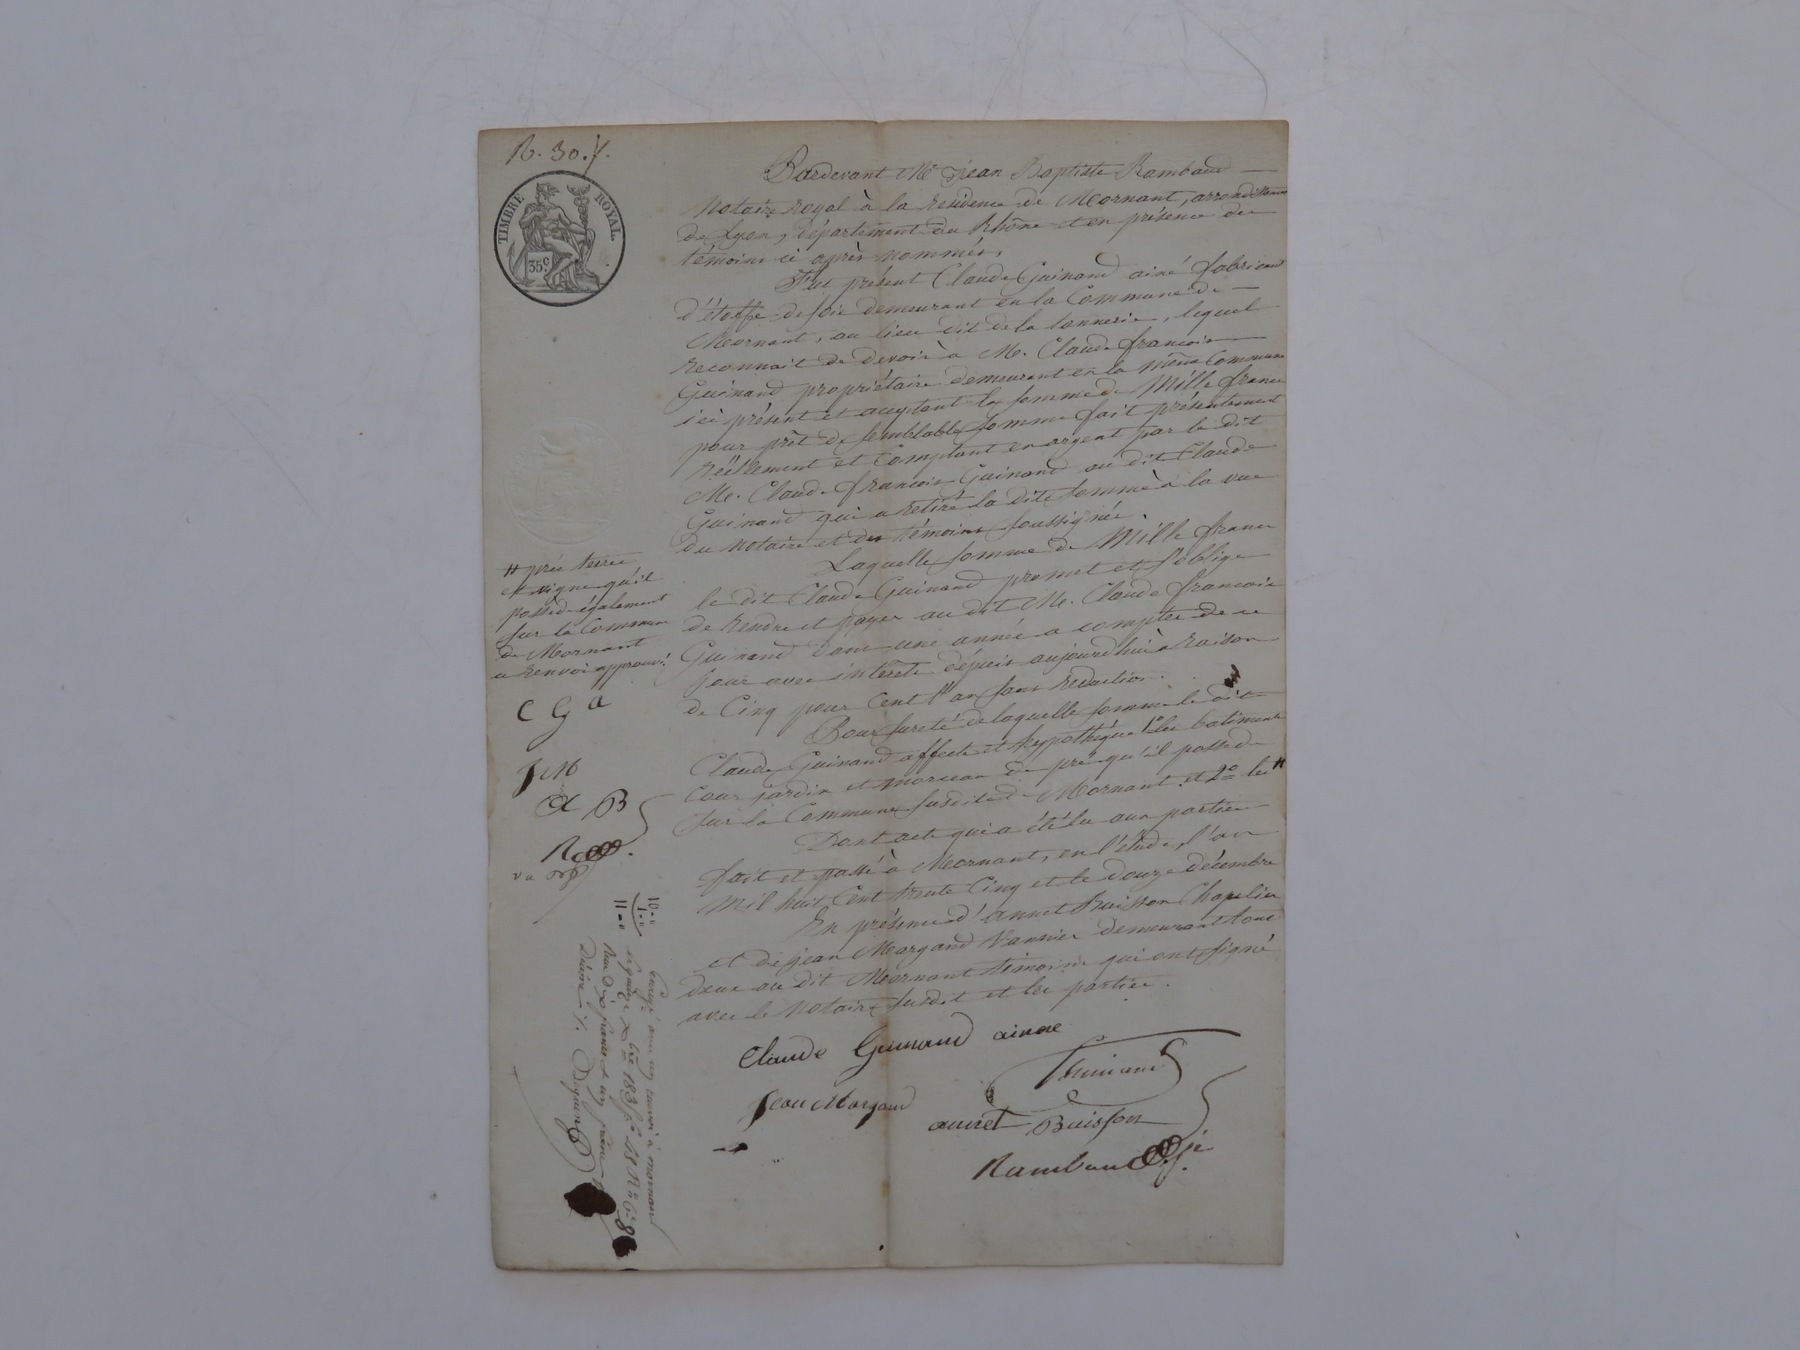 R. 30.
TIMBRE ROYAL.
35c
Pardevant Me Jean Baptiste Rambaud
Notaire royal à la résidence de Mornant, arrondissement
de Lyon, département du Rhône et en présence des
témoins ci après nommés,
Fut présent Claude Guinand ainé fabricant
d'étoffe de soie demeurant en la Commune de
Mornant, au lieu dit de la tonnerie, lequel
reconnait de devoir à M. Claude françois
Guinand propriétaire demeurant en la même Commune
ici présent et acceptant la somme de Mille francs
pour prêt de semblable somme fait présentement
réellement et Comptant en argent par le dit
M. Claude françois Guinand au dit Claude
Guinand qui a retiré la dite somme à la vue
du notaire et des témoins soussignés.
Laquelle somme de Mille francs
le dit Claude Guinand promet et s'oblige
de rendre et payer au dit M. Claude françois
Guinand dans une année a compter de ce
jour avec intérêts depuis aujourd'hui à raison
de Cinq pour Cent l'an sans réduction.
Pour sureté de laquelle somme le dit
Claude Guinand affecte et hyppothèque 1o les batiments
Cour jardin et morceau de pré qu'il possède
sur la Commune susdite de Mornant. et 2o les #
Dont acte qui a été lu aux parties
fait et passé à Mornant, en l'étude, l'an
Mil huit Cent trente Cinq et le douze décembre
En présence d'annet Buisson Chapelier
et de jean Margand Vannier demeurant tous
deux au dit Mornant témoins qui ont signé
avec le Notaire susdit et les parties.
# prés terres
et vigne qu'il
possède également
sur la Commune
de Mornant
ce renvoi approuvé.
C G a
J M
a B
R
Claude Guinand ainné
Guinand
Jean Margand
annet Buisson
Rambaud
10-"
1-"
11-"
Enregé avec un renvoi à mornant
le 183
Reçu dix francs et un franc
Décime